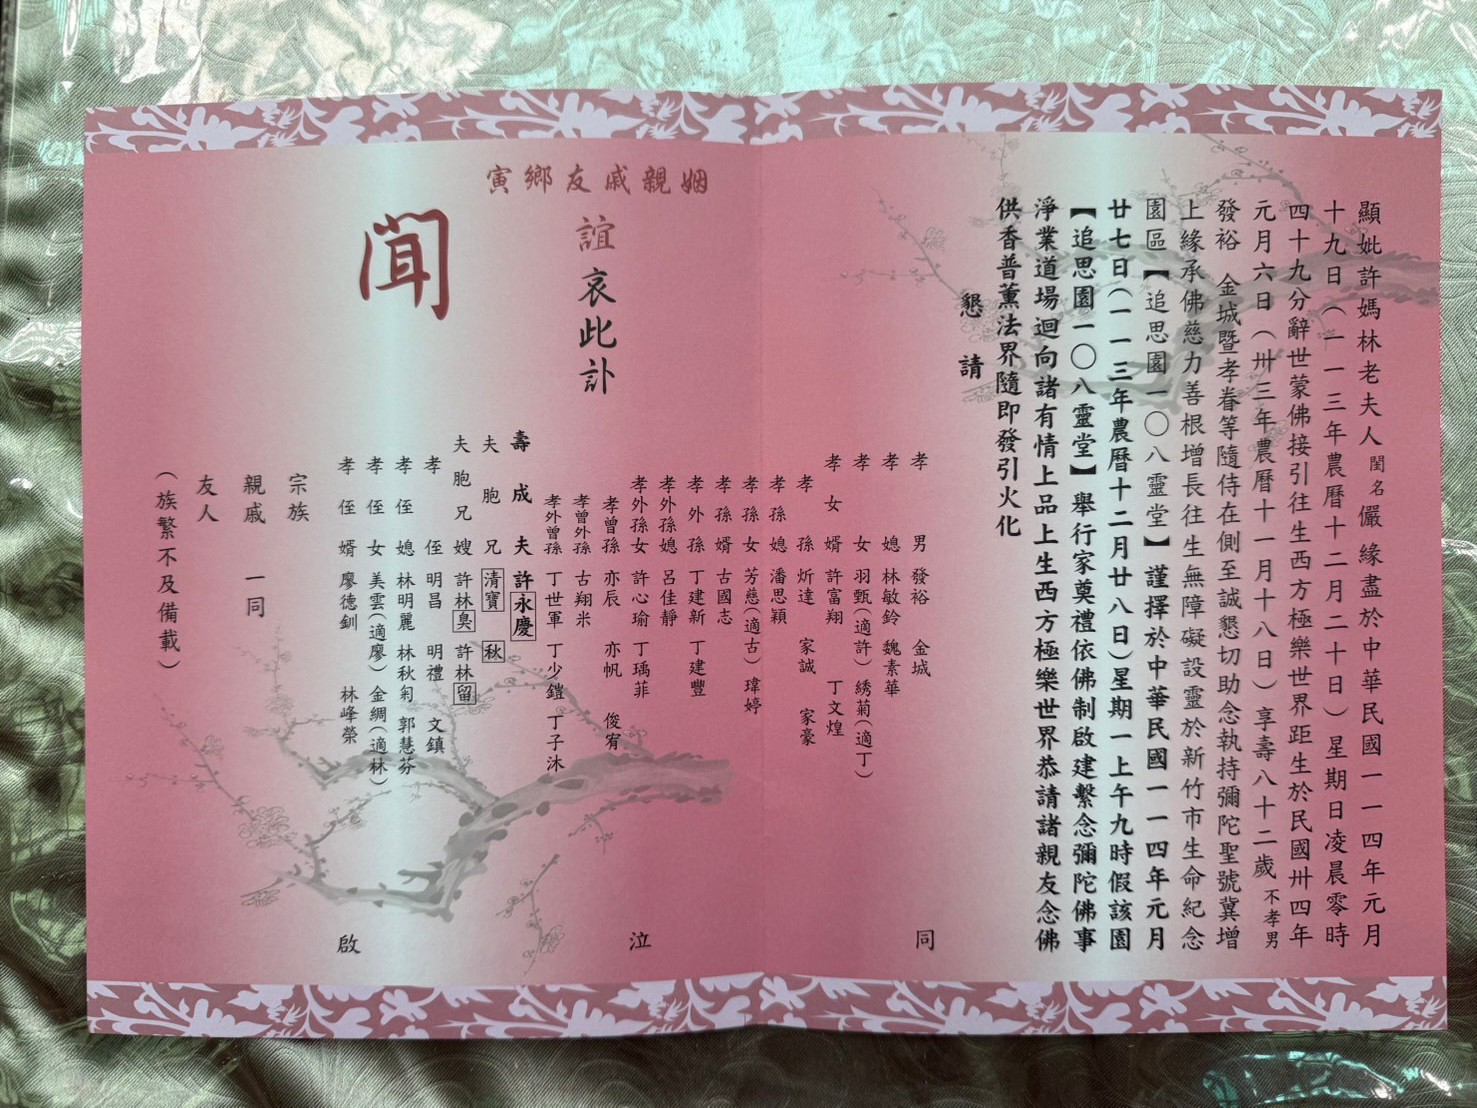 顯妣許媽林老夫人閨名儼 緣盡於中華民國一一四年元月
十九日（一一三年農曆十二月二十日）星期日凌晨零時
四十九分辭世蒙佛接引往生西方極樂世界距生於民國卅四年
元月六日（卅三年農曆十一月十八日）享壽八十二歲 不孝男
發裕 金城暨孝眷等隨侍在側至誠懇切助念執持彌陀聖號冀增
上緣承佛慈力善根增長往生無障礙設靈於新竹市生命紀念
園區【追思園一〇八靈堂】謹擇於中華民國一一四年元月
廿七日（一一三年農曆十二月廿八日）星期一上午九時假該園
【追思園一〇八靈堂】舉行家奠禮依佛制啟建繫念彌陀佛事
淨業道場迴向諸有情上品上生西方極樂世界恭請諸親友念佛
供香普薰法界隨即發引火化
懇請
孝男 發裕 金城
孝媳 林敏鈴 魏素華
孝女 羽甄（適許） 綉菊（適丁）
孝女婿 許富翔 丁文煌
孝孫 炘達 家誠 家豪
孝孫媳 潘思穎
孝孫女 芳慈（適古） 瑋婷
孝孫婿 古國志
孝外孫 丁建新 丁建豐
孝外孫媳 呂佳靜
孝外孫女 許心瑜 丁瑀菲
孝曾孫 亦辰 亦帆 俊宥
孝曾外孫 古翔米
孝外曾孫 丁世軍 丁少鎧 丁子沐
壽成夫 許永慶
夫胞兄 清寶 秋
夫胞兄嫂 許林臭 許林留
孝侄 明昌 明禮 文鎮
孝侄媳 林明麗 林秋匊 郭慧芬
孝侄女 美雲（適廖） 金綢（適林）
孝侄婿 廖德釧 林峰榮
同 泣 啟
宗族
親戚 一同
友人
（族繁不及備載）
姻親戚友鄉寅
誼哀此訃
聞